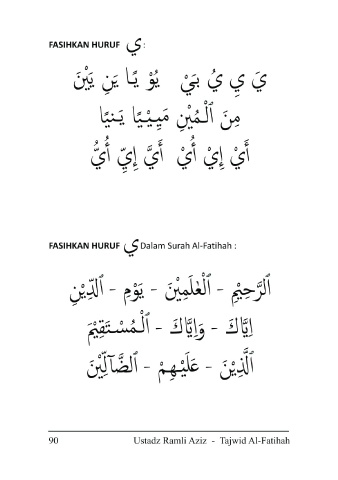 FASIHKAN HURUF ي :
يَ يِ يُ بَيْ يُوْ يًا يَنِ يَيْنَ
مِنَ ٱلْمُيْنِ مَيِيْيًا يَنيًا
أَيْ إِيْ أُيْ أَيَّ إِيِّ أُيُّ
FASIHKAN HURUF ي Dalam Surah Al-Fatihah :
ٱلرَّحِيْمِ - ٱلْعٰلَمِيْنَ - يَوْمِ - ٱلدِّيْنِ
اِيَّاكَ - وَاِيَّاكَ - ٱلْمُسْتَقِيْمَ
ٱلَّذِيْنَ - عَلَيْهِمْ - ٱلضَّآلِّيْنَ
90 Ustadz Ramli Aziz - Tajwid Al-Fatihah